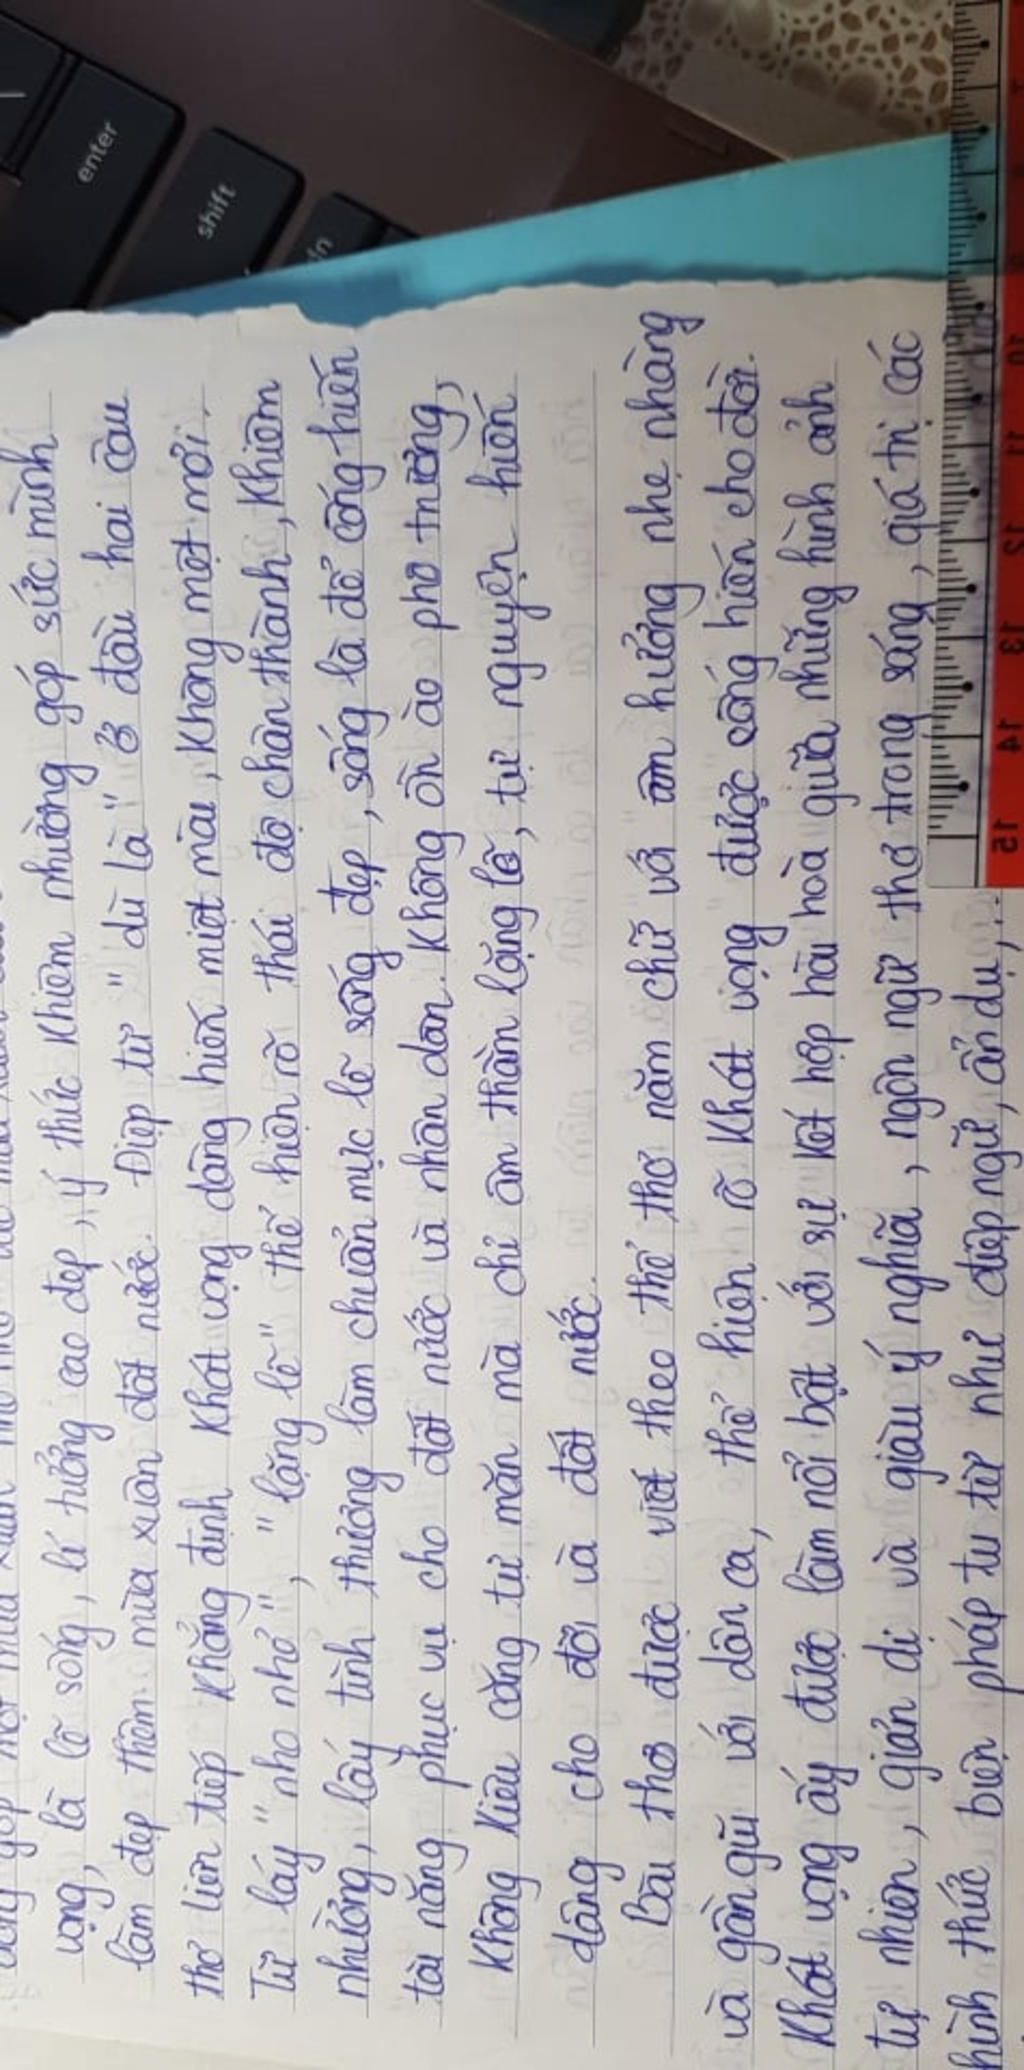 vọng, là lẽ sống, lí tưởng cao đẹp, ý thức khiêm nhường góp sức mình
làm đẹp thêm mùa xuân đất nước. Điệp từ "dù là" ở đầu hai câu
thơ liên tiếp khẳng định khát vọng dâng hiến miệt mài, không mệt mỏi.
Từ láy "nho nhỏ", "lặng lẽ" thể hiện rõ thái độ chân thành, khiêm
nhường, lấy tình thương làm chuẩn mực lẽ sống đẹp, sống là để cống hiến
tài năng phục vụ cho đất nước và nhân dân. Không ồn ào phô trương,
không kiêu căng tự mãn mà chỉ âm thầm lặng lẽ, tự nguyện hiến
dâng cho đời và đất nước.
Bài thơ được viết theo thể thơ năm chữ với âm hưởng nhẹ nhàng
và gần gũi với dân ca, thể hiện rõ khát vọng được cống hiến cho đời.
Khát vọng ấy được làm nổi bật với sự kết hợp hài hoà giữa những hình ảnh
tự nhiên, giản dị và giàu ý nghĩa, ngôn ngữ thơ trong sáng, giá trị các
hình thức biện pháp tu từ như điệp ngữ, ẩn dụ,..
enter
shift
fn
10
11
12
13
14
15